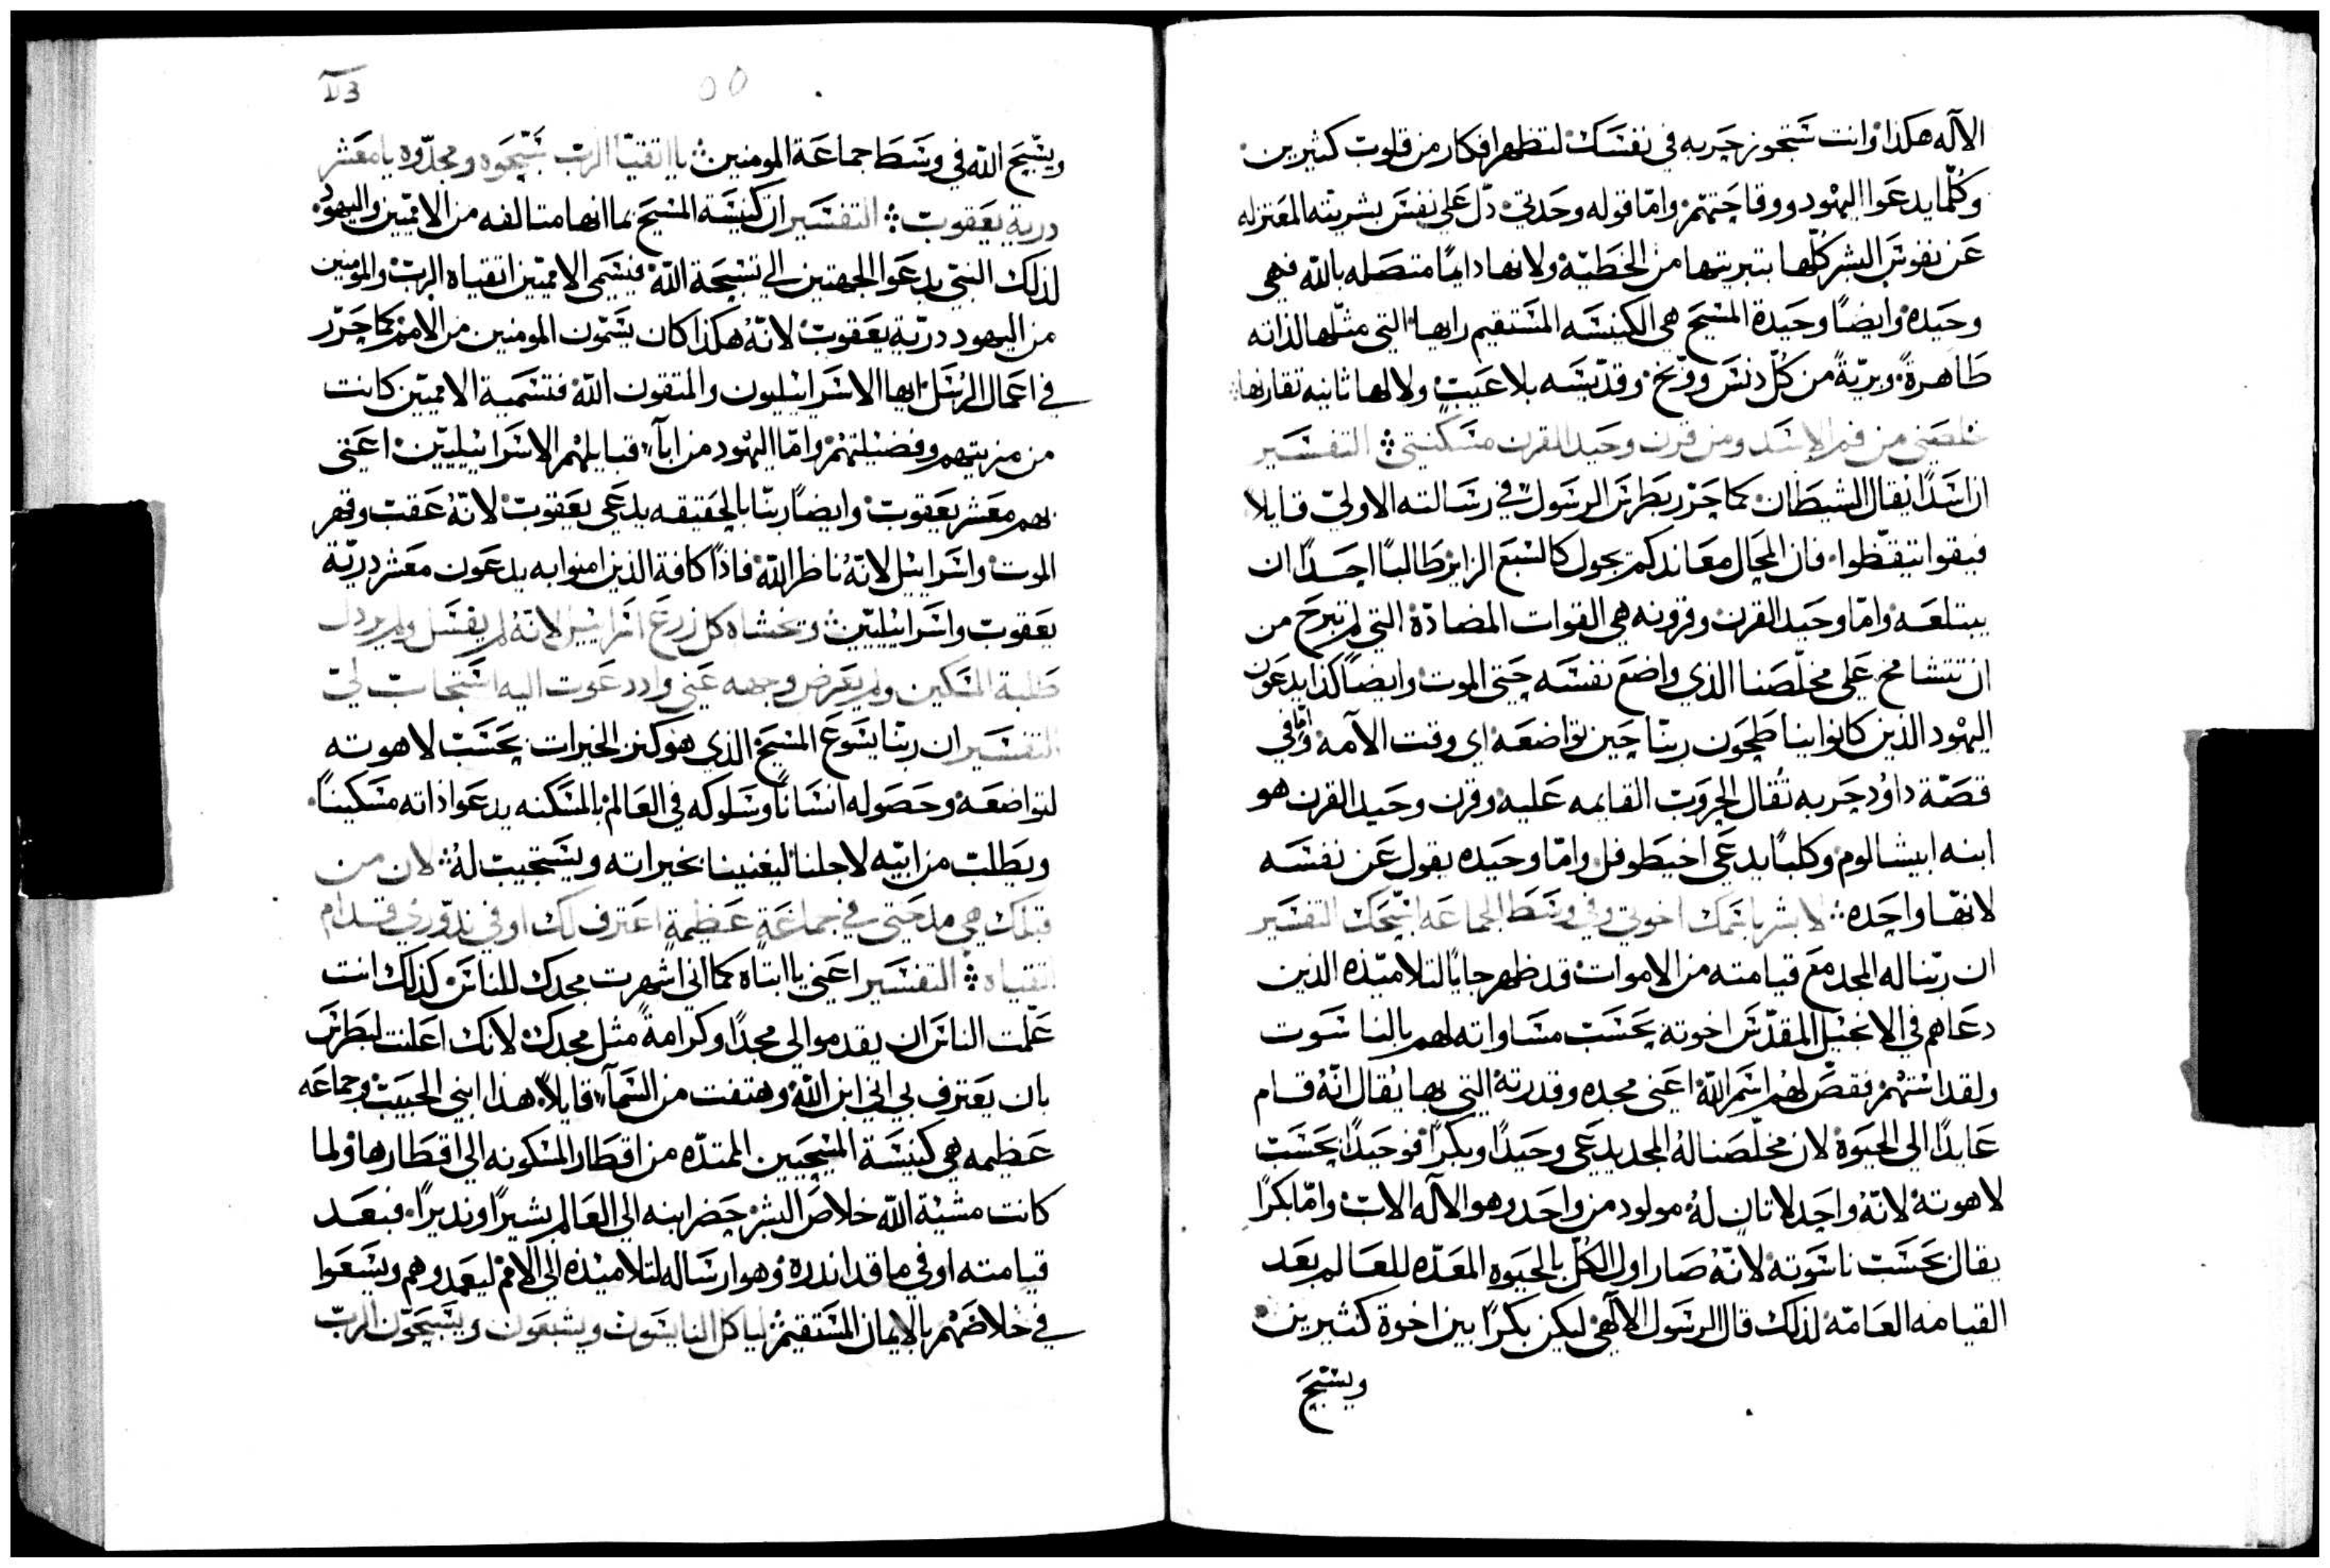 الآله هكذا وانت ستجوز حربه في نفسك لتظهر افكار من قلوب كثيرين
وكلّما يدعوا اليهود ووقاحتهم وامّا قوله وحدتي دلّ على نفس بشريته المعتزله
عن نفوس البشر كلّها بتبريتها من الخطيّة ولانها دايمًا متصله بالله فهي
وحيدة وايضًا وحيدة المسيح هي الكنيسه المستقيم رايها التي مثّلها لذاته
طاهرةً وبريّةً من كلّ دنس ووسخ وقدّيسه بلا عيب ولا لها ثانيه تقارنها
خلصني من فم الاسد ومن قرن وحيد القرن مسكنتي التفسير
ان اسدًا يقال الشيطان كما حرّر بطرس الرسول في رسالته الاولى قايلاً
فيقوا تيقّظوا فان المحال معاندكم يجول كالسبع الزاير طالبًا احدًا ان
يبتلعه وامّا وحيد القرن وقرونه هي القوات المضادّة التي لم تبرح من
ان تتشامخ على مخلّصنا الذي واضع نفسه حتى الموت وايضًا كذا يدعون
اليهود الذين كانوا يناطحون ربنا حين تواضعه اي وقت الآمه وامّا في
قصّة داؤد حربه تُقال الحروب القايمه عليه وقرن وحيد القرن هو
ابنه ابيشالوم وكلبًا يدعى اخيطوفل وامّا وحيده يقول عن نفسه
لانّها واحده لابشر باسمك اخوتي وفي وسط الجماعه اسبّحك التفسير
ان ربّنا له المجد مع قيامته من الاموات قد ظهر جايًا لتلاميذه الذين
دعاهم في الانجيل المقدّس اخوته بحسب مساواته لهم بالناسوت
ولقد استهم فقصّ لهم اسم الله اعني مجده وقدرته التي بها يُقال انّه قام
عايدًا الى الحيوة لان مخلّصنا له المجد يدعى وحيدًا وبكرًا فوحيدًا بحسب
لاهوته لانّه واحد لا تان لهُ مولود من واحد وهو الآله الاب وامّا بكرًا
يقال بحسب ناسوته لانّهُ صار اول الكلّ بالحيوه المعَدّه للعالم بعد
القيامه العامّه لذلك قال الرسول الالهي ليكن بكرًا بين اخوة كثيرين
ويسبّح
ويسّبح الله في وسط جماعة المومنين يا اتقيا الرب سبّحوه ومجّدوه يا معشر
درية يعقوب التفسير ان كنيسة المسيح بما انها متالفه من الامميّين واليهود
لذلك النبيّ يدعوا الجهتين الى تسبيحة الله فيسمى الامميّين اتقياه الرب والمومنين
من اليهود دريّة يعقوب لانّهُ هكذا كان يسمّون المومنين من الامم كما حرّر
في اعمال الرسل ايها الاسراييليون والمتقون الله فتسمية الامميّين كانت
من مزيتهم وفضيلتهم وامّا اليهود من اباآ قبايلهم الاسراييليّين اعني
بهم معشر يعقوب وايضًا ربّنا بالحقيقه يدعى يعقوب لانّهُ عقب وقهر
الموت واسراييل لانّهُ ناظر الله فاذًا كافة الذين امنوا به يدعون معشر دريّة
يعقوب واسراييليّين وتخشاه كل زرع اسراييل لانّهُ لم يفسل ولم يردل
طلبة المسكين ولم يعرض وجهه عني واد دعوت اليه استجاب لي
التفسير ان ربّنا يسوع المسيح الذي هو كنز الخيرات بحسب لاهوته
لتواضعه وحصوله انسانًا وسلوكه في العالم بالمسكنه يدعوا ذاته مسكينًا
ويطلب من ابيّه لاجلنا ليغنينا بخيراته ويستجيب لهُ لان من
قبلك هي مدحتي في جماعة عظيمة اعترف لك اوفي ندّوري قدام
اتقياه التفسير اعني يا ابتاه كما اني اشهرت مجدك للناس كذلك انت
علّمت الناس ان يقدموا لي مجدًا وكرامةً مثل مجدك لانك اعلنت لبطرس
بان يعترف بي اني ابن الله وهتفت من السمآ قايلاً هذا ابني الحبيب وجماعه
عظيمه هي كنيسة المسيحيين الممتدّه من اقطار المسكونه الى اقطارها ولما
كانت مشيّة الله خلاص البشر حضر ابنه الى العالم بشيرًا ونديرًا فبعد
قيامته اوفي ما قد اندره وهو ارساله لتلاميذه الى الامم ليعمدوهم ويسعوا
في خلاصهم بالايمان المستقيم لياكل البايسون ويشبعون ويسبّحون الربّ